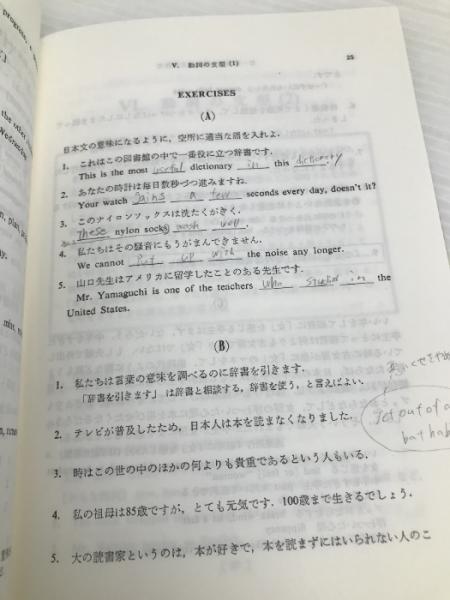 V. 動詞の文型 (1) 25
EXERCISES
(A)
日本文の意味になるように,空所に適当な語を入れよ.
1. これはこの図書館の中で一番役に立つ辞書です.
This is the most useful dictionary in this dictionary.
2. あなたの時計は毎日数秒づつ進みますね.
Your watch gains a few seconds every day, doesn't it?
3. このナイロンソックスは洗たくがきく.
These nylon socks wash well.
4. 私たちはその騒音にもうがまんできません.
We cannot put up with the noise any longer.
5. 山口先生はアメリカに留学したことのある先生です.
Mr. Yamaguchi is one of the teachers who studied in the
United States.
(B)
1. 私たちは言葉の意味を調べるのに辞書を引きます.
「辞書を引きます」は辞書と相談する,辞書を使う,と言えばよい.
get out of a
bat hab
2. テレビが普及したため,日本人は本を読まなくなりました.
3. 時はこの世の中のほかの何よりも貴重であるという人もいる.
4. 私の祖母は85歳ですが,とても元気です.100歳まで生きるでしょう.
5. 大の読書家というのは,本が好きで,本を読まずにはいられない人のこ